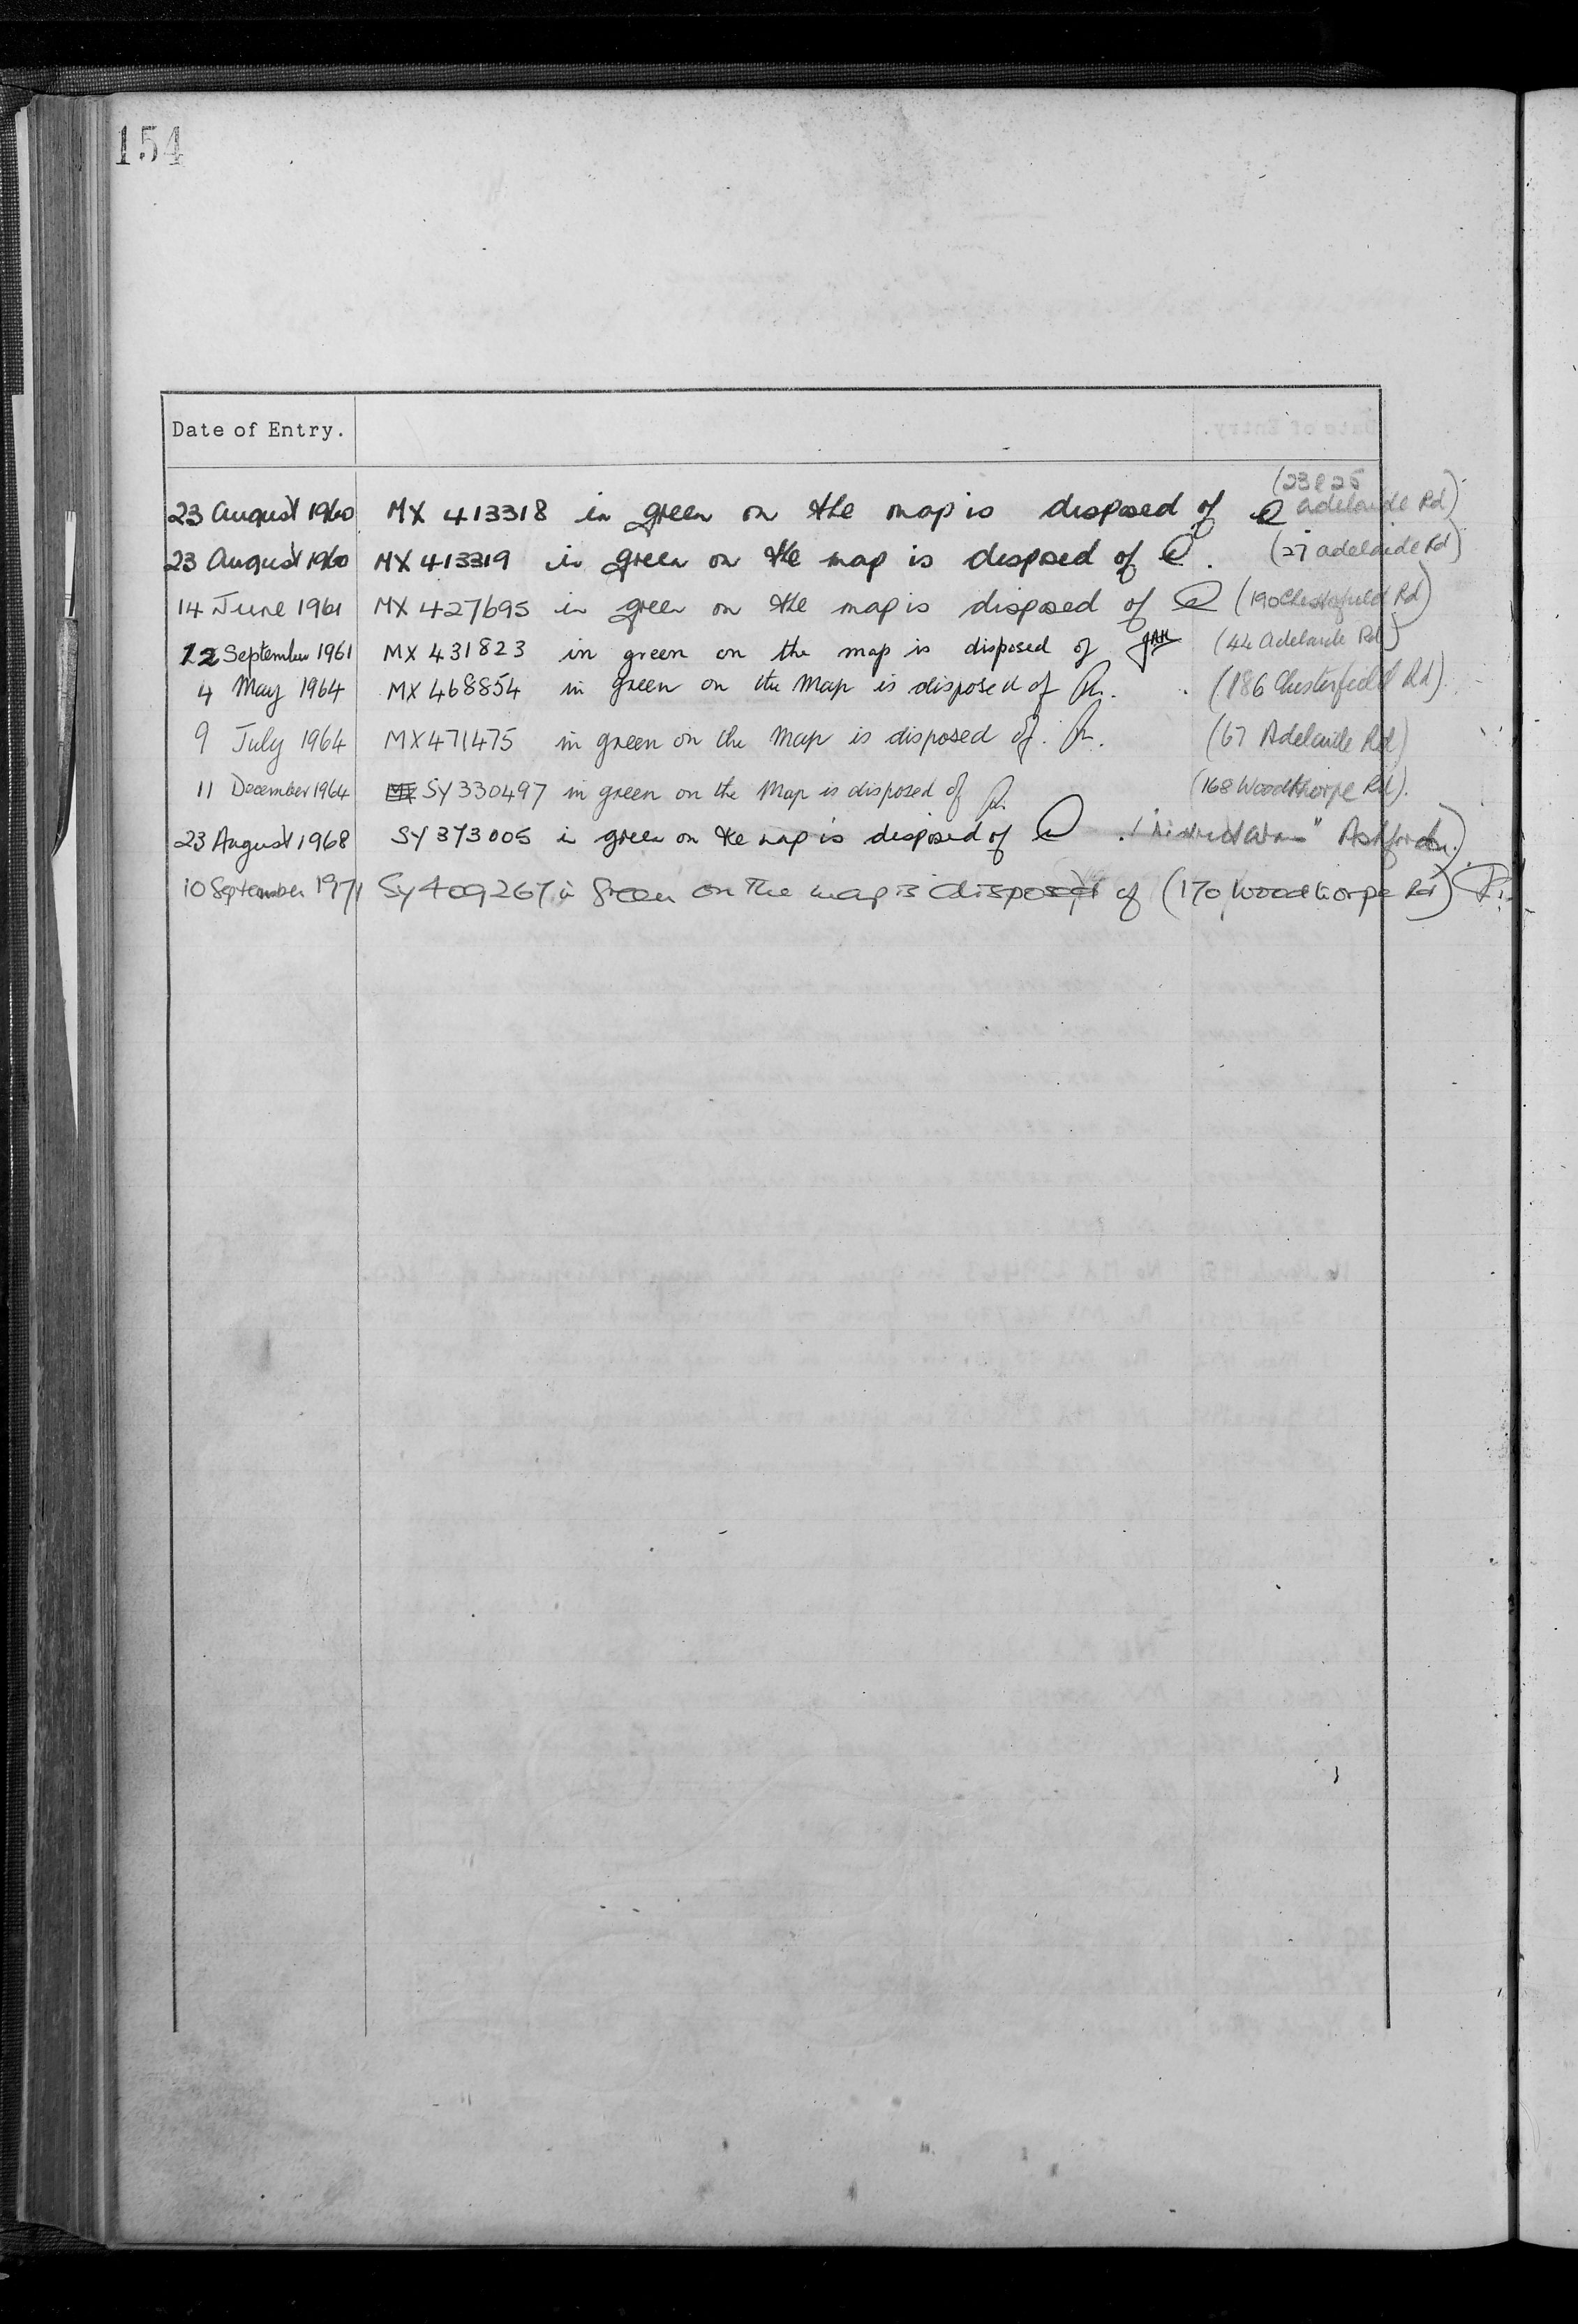 154
Date of Entry.
(23 & 25
23 August 1960 MX 413318 in green on the map is disposed of Adelaide Rd)
23 August 1960 MX 413319 in green on the map is disposed of . (27 Adelaide Rd)
14 June 1961 MX 427695 in green on the map is disposed of (190 Chesterfield Rd)
12 September 1961 MX 431823 in green on the map is disposed of (44 Adelaide Rd)
4 May 1964 MX 468854 in green on the Map is disposed of (186 Chesterfield Rd).
9 July 1964 MX 471475 in green on the Map is disposed of. (67 Adelaide Rd)
11 December 1964 MX SY 330497 in green on the Map is disposed of (168 Woodthorpe Rd).
23 August 1968 SY 373005 in green on the map is disposed of Ashford
10 September 1971 SY 409267 in Green on the map is disposed of (170 Woodthorpe Rd)